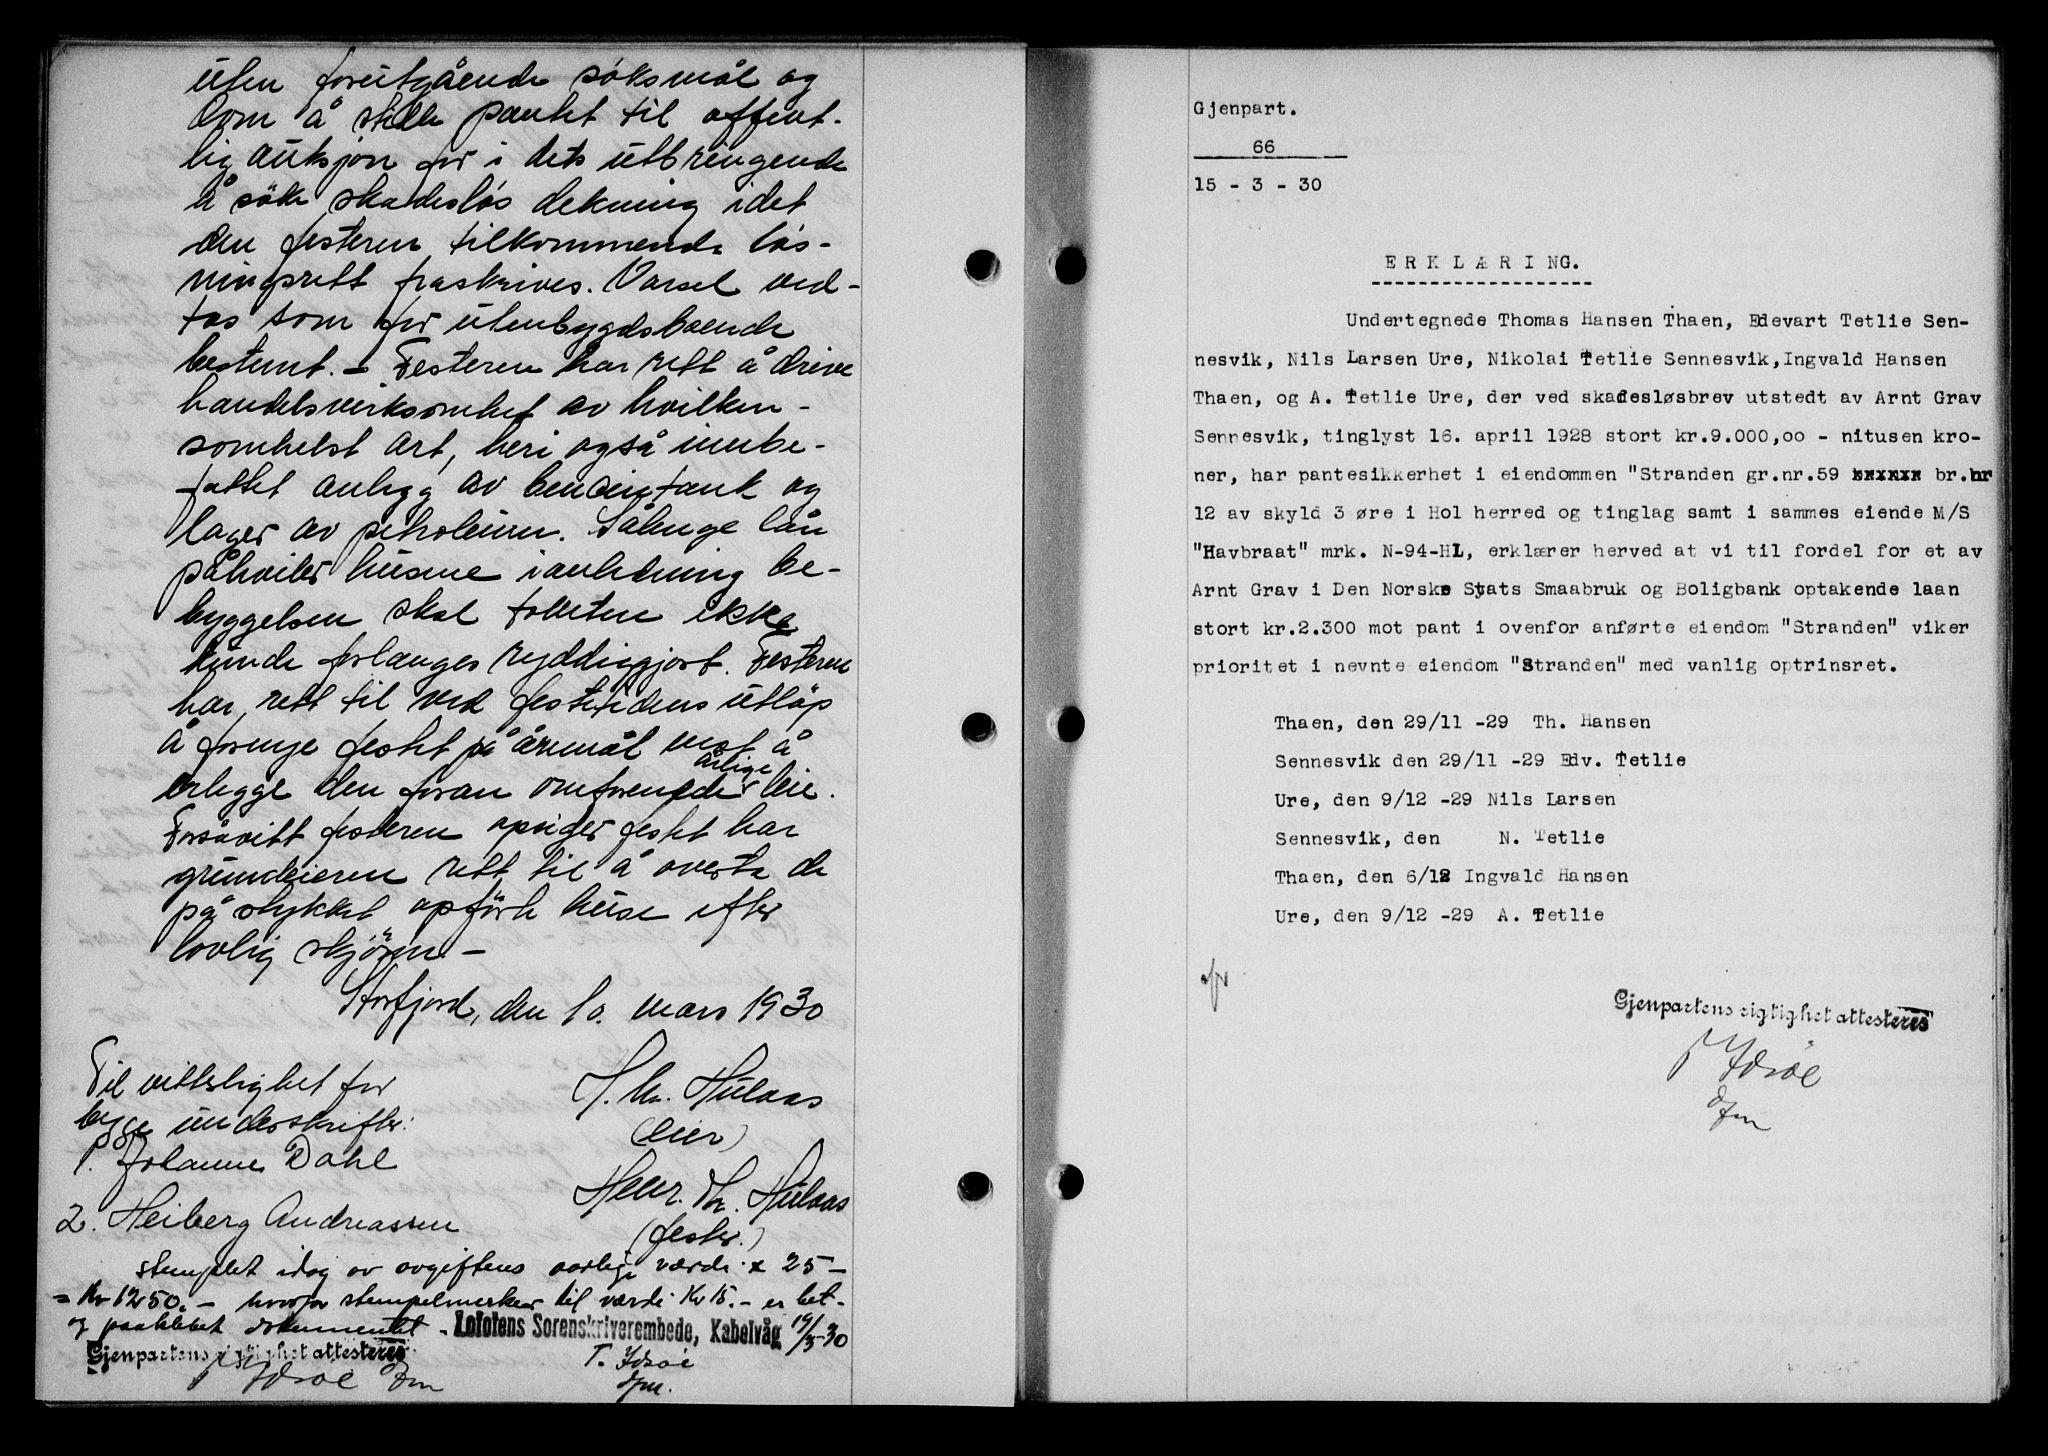 uten forutgående søksmål og
dom å stille pantet til offent-
lig auksjon for i dets utbringende
å söke skadesløs dekning idet
den festeren tilkommende løs-
ningsrett fraskrives. Varsel ved-
tas som for utenbygdsboende
bestemt. - Festeren har rett å drive
handelsverksomhet av hvilken-
somhelst art, heri også innbe-
fattet anlegg av bensintank og
lager av petroleum. Sålenge lån
påhviler husene i anledning be-
byggelsen skal tomten ikke
kunde forlanges ryddiggjort. Festeren
har rett til ved festetidens utløp
å fornye festet på åremål mot å
årlige
erlegge den foran omforenede leie.
Forsåvitt festeren opsiger festet har
grundeieren rett til å overta de
på stykket opförte huse efter
lovlig skjønn -
Storfjord, den 10. mars 1930
Til vitterlighet for
begge underskrifter:
1. Johanne Dahl
2. Heiberg Andreassen
H. Hulaas
(eier)
Henr. Th. Hulaas
(fester.)
Stemplet idag av avgiftens aarlige værdi x 25 -
= Kr 1250.- hvorfor stempelmerker til værdi Kr 15.- er bet-
og paaklebet dokumentet - Lofotens Sorenskriverembede, Kabelvåg 19/3-30
T. Idsøe
fm.
Gjenpartens rigtighet attesteres
T Idsøe
fm
Gjenpart.
66
15 - 3 - 30
E R K L Æ R I NG.
Undertegnede Thomas Hansen Thaen, Edevart Tetlie Sen-
nesvik, Nils Larsen Ure, Nikolai Tetlie Sennesvik, Ingvald Hansen
Thaen, og A. Tetlie Ure, der ved skadesløsbrev utstedt av Arnt Grav
Sennesvik, tinglyst 16. april 1928 stort kr.9.000,oo - nitusen kro-
ner, har pantesikkerhet i eiendommen "Stranden gr.nr.59 br.nr
12 av skyld 3 øre i Hol herred og tinglag samt i sammes eiende M/S
"Havbraat" mrk. N-94-HL, erklærer herved at vi til fordel for et av
Arnt Grav i Den Norske Stats Smaabruk og Boligbank optakende laan
stort kr.2.300 mot pant i ovenfor anførte eiendom "Stranden" viker
prioritet i nevnte eiendom "Stranden" med vanlig optrinsret.
Thaen, den 29/11 -29 Th. Hansen
Sennesvik den 29/11 -29 Edv. Tetlie
Ure, den 9/12 -29 Nils Larsen
Sennesvik, den N. Tetlie
Thaen, den 6/12 Ingvald Hansen
Ure, den 9/12 -29 A. Tetlie
Gjenpartens rigtighet attesteres
T Idsøe
fm